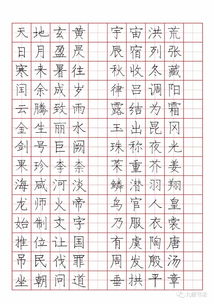 天地玄黄 宇宙洪荒
日月盈昃 辰宿列张
寒来暑往 秋收冬藏
闰余成岁 律吕调阳
云腾致雨 露结为霜
金生丽水 玉出昆冈
剑号巨阙 珠称夜光
果珍李柰 菜重芥姜
海咸河淡 鳞潜羽翔
龙师火帝 鸟官人皇
始制文字 乃服衣裳
推位让国 有虞陶唐
吊民伐罪 周发殷汤
坐朝问道 垂拱平章